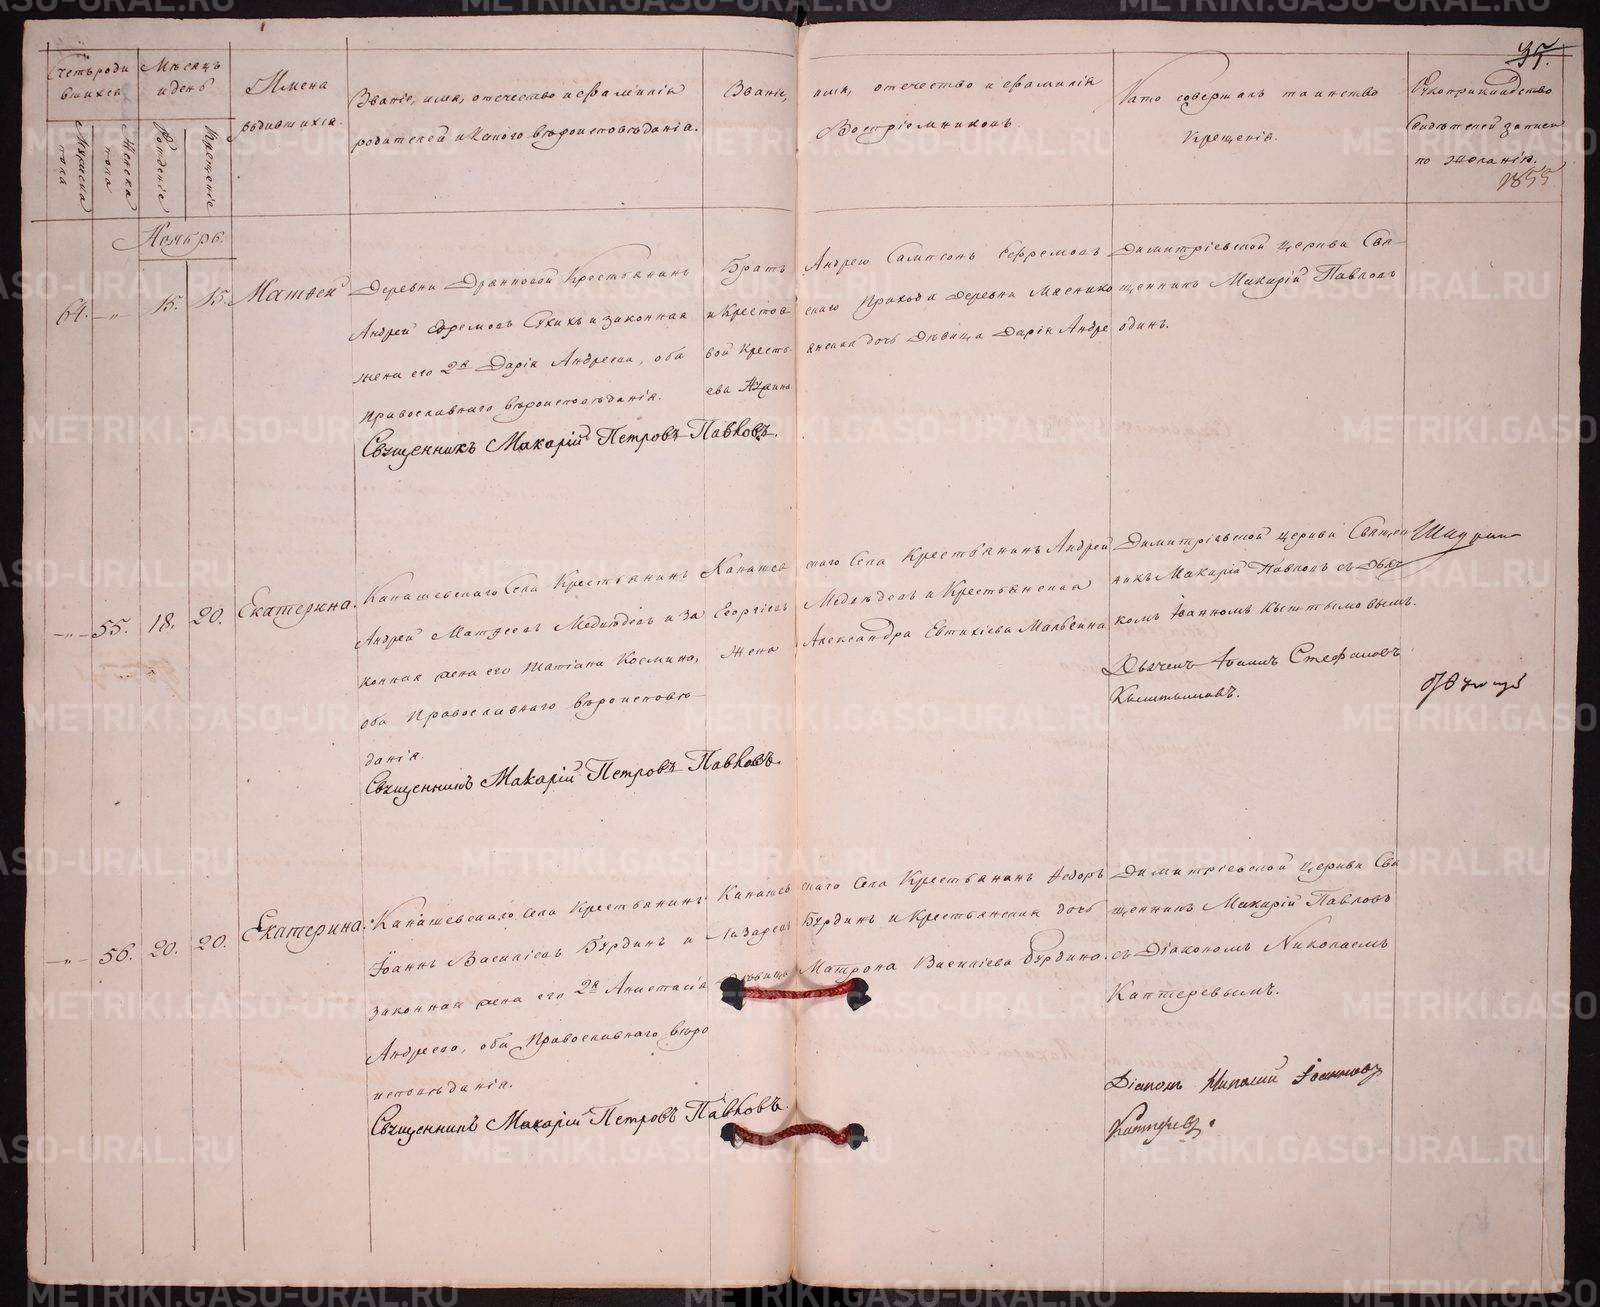 35.
Счетъ роди
вшихся
Мѣсяцъ
и день
Имена
родившихся.
Званіе, имя, отечество и фамилія
родителей и какого вѣроисповѣданія.
Званіе,
имя, отечество и фамилія
Воспріемниковъ.
Кто совершалъ таинство
крещенія.
Рукоприкладство
свидѣтелей записи
по желанію.
1855
Мужеска
пола
Женска
пола
Рожденіе
Крещеніе
Ноябрь.
64. -„- 15. 15. Матѳей
Деревни Дранновой Крестьянинъ
Андрей Ефремовъ Сухихъ и законная
жена его 2я Дарія Андреева, оба
православнаго вѣроисповѣданія.
Священникъ Макарій Петровъ Павловъ.
Братъ Андрею Сампсонъ Ефремовъ
и Крестов скаго прихода деревни Мяснико
вой кресть янская дочь дѣвица Дарія Андре
ева
Димитріевской церкви Свя-
щенникъ Макарій Павловъ
одинъ.
-„- 55. 18. 20. Екатерина.
Канашевскаго Села Крестьянинъ
Андрей Матѳеевъ Медвѣдевъ и за
конная жена его Татіана Космина,
оба православнаго вѣроисповѣ-
данія.
Священникъ Макарій Петровъ Павловъ.
Канашев скаго Села Крестьянинъ Андрей
Георгіевъ Медвѣдевъ и Крестьянская
жена Александра Евтихіева Мальгина
Димитріевской церкви Священ
никъ Макарій Павловъ съ Дьяч
комъ Іоанномъ Кыштымовымъ.
Дьячекъ Іоаннъ Стефановъ
Кыштымовъ.
-„- 56. 20. 20. Екатерина.
Канашевскаго Села Крестьянинъ
Іоаннъ Василіевъ Бурдинъ и
законная жена его 2я Анастасія
Андреева, оба Православнаго вѣро
исповѣданія.
Священникъ Макарій Петровъ Павловъ.
Канашев скаго Села Крестьянинъ Ѳедоръ
Лазаревъ Бурдинъ и Крестьянская дочь
дѣвица Матрона Василіева Бурдина.
Димитріевской церкви Свя
щенникъ Макарій Павловъ
съ Діакономъ Николаемъ
Каптеревымъ.
Діаконъ Николай Іоанновъ
Каптеревъ.
METRIKI.GASO-URAL.RU